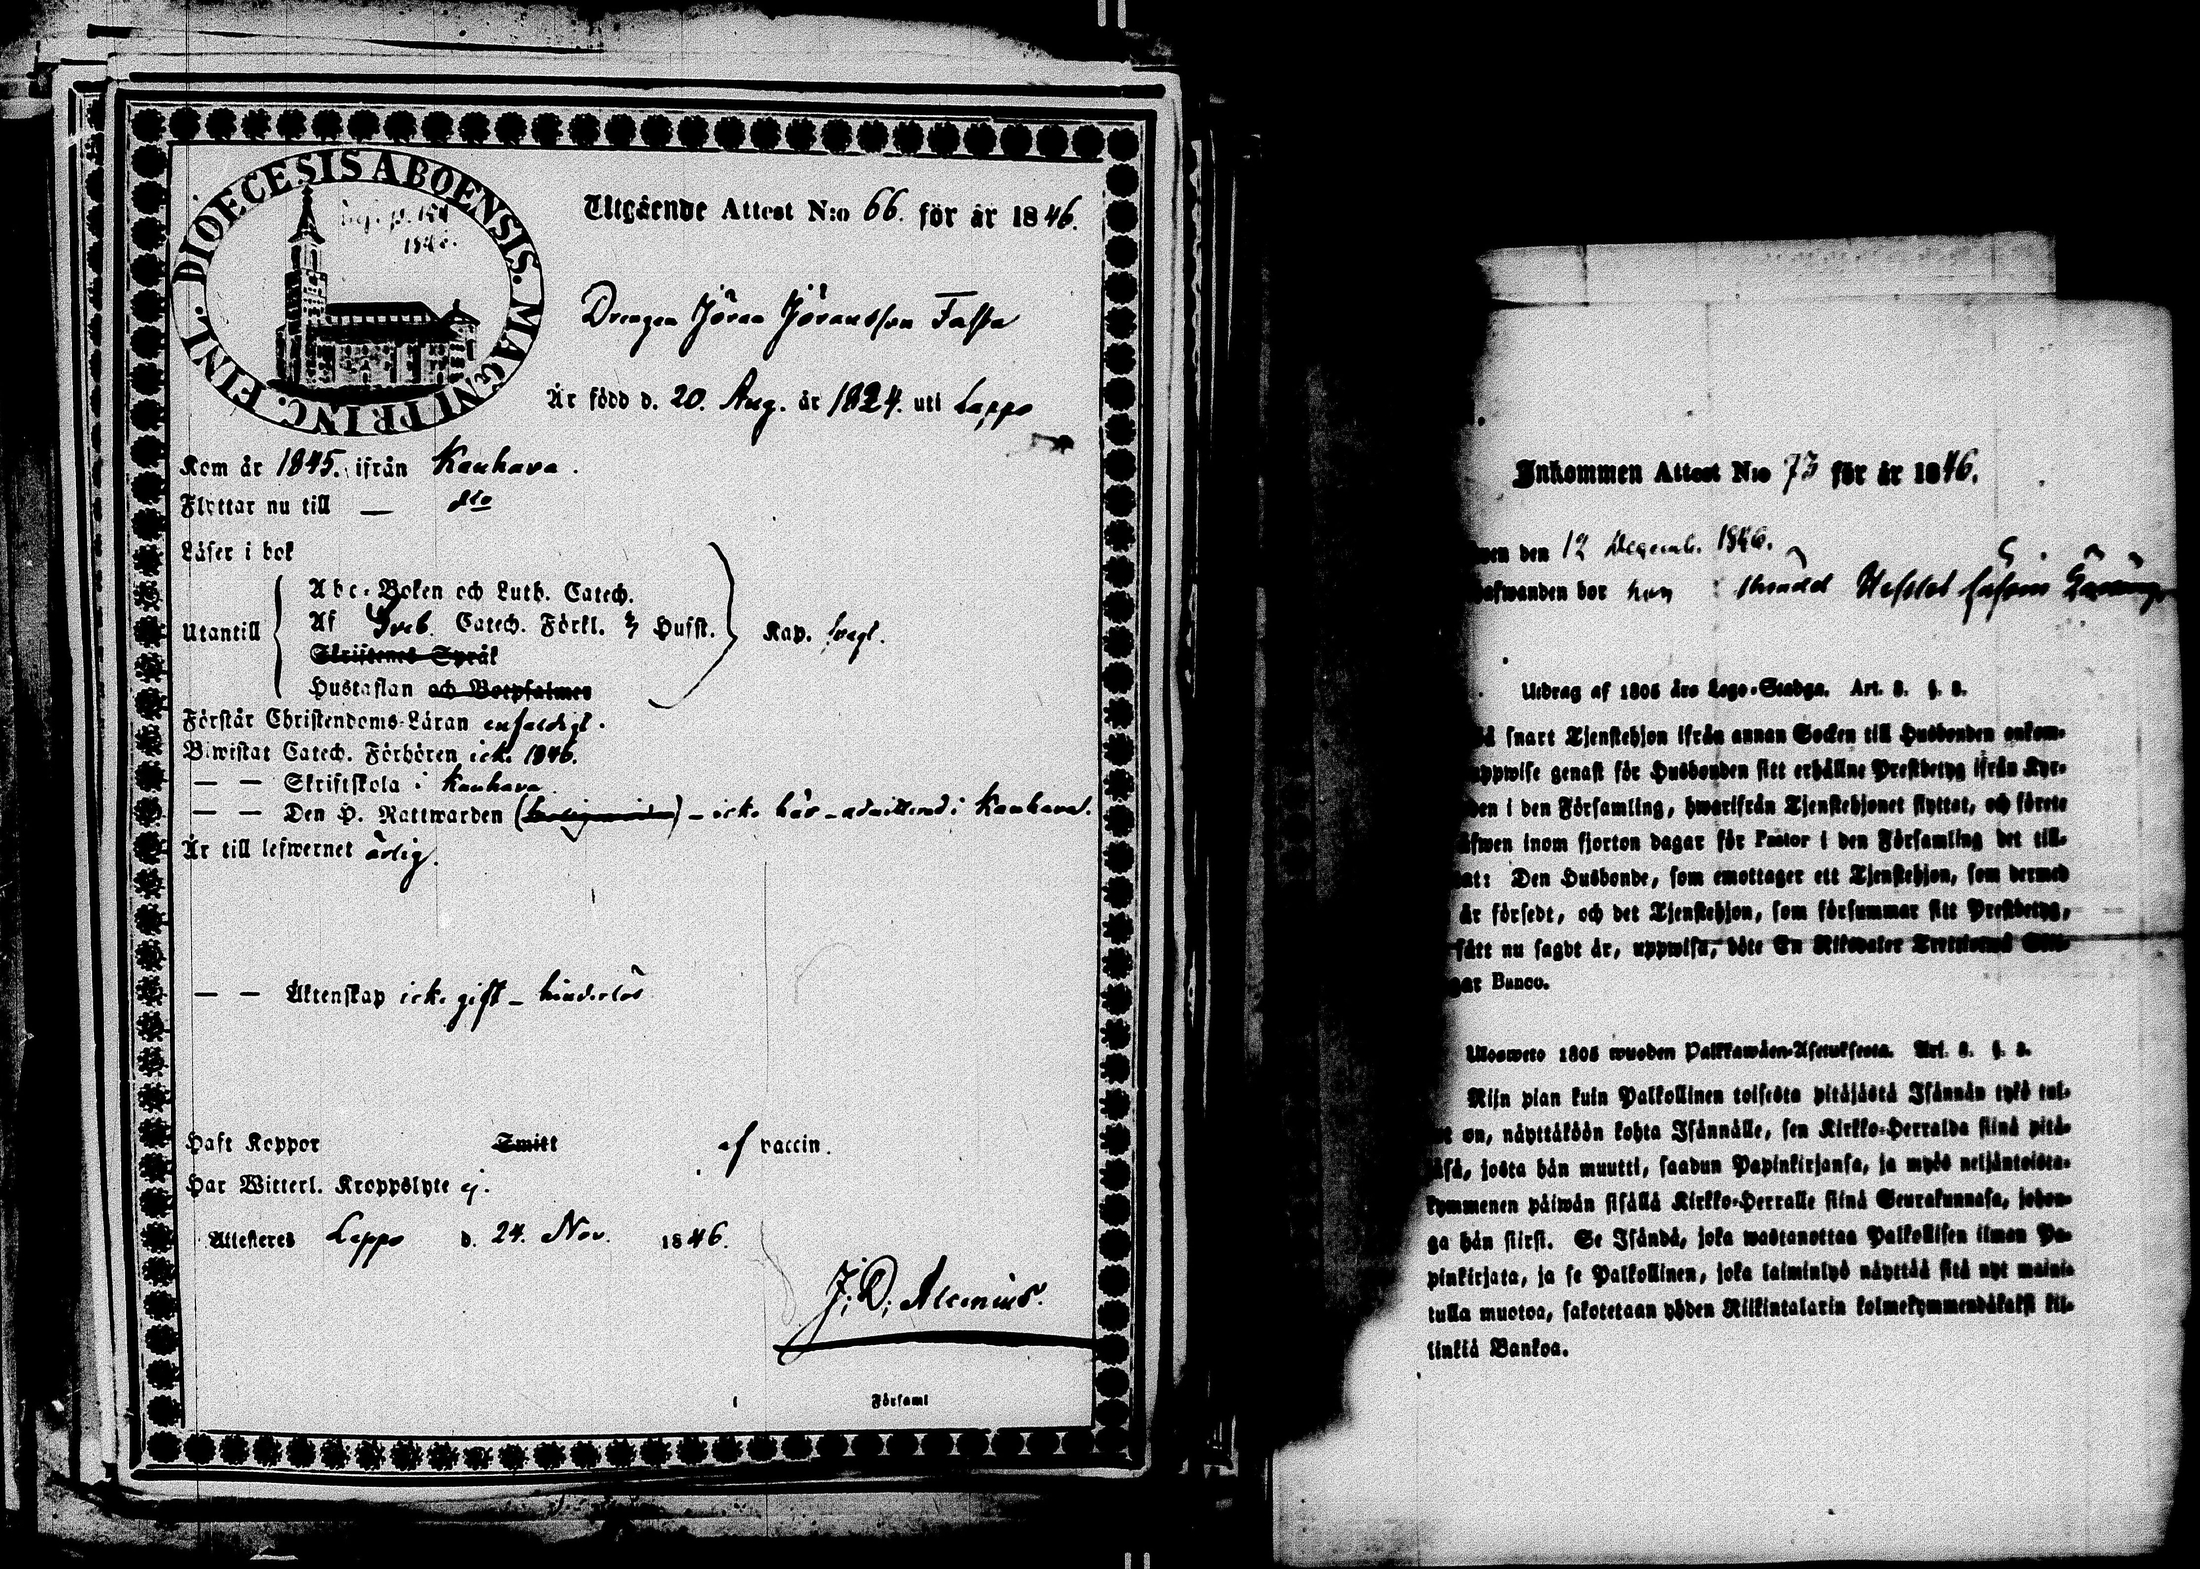 DIOECESIS ABOENSIS. MAGNI PRINC. FINL.
Utgående Attest N:o 66. för år 1846.
Drengen Jöran Jöransson
Är född d. 20. Aug. år 1824. uti Lappo
Kom år 1845. ifrån Kauhava.
Flyttar nu till — dto
Läser i bok
Utantill
Abc-Boken och Luth. Catech.
Af Sveb. Catech. Förkl. Husst. Kap. svagt.
Skriftenes Språk
Hustaflan och Botpsalmer
Förstår Christendoms-Läran enfaldigt.
Biwistat Catech. Förhören icke 1846.
— — Skriftskola i Kauhava.
— — Den H. Nattwarden — icke här – admitterad i Kauhava.
Är till lefwernet ärlig.
— — Äktenskap icke gift – hinderlös
Haft Koppor Smitt af vaccin.
Har Witterl. Kroppslyte ej.
Attesteres Lappo d. 24. Nov. 1846.
J. D. Alcenius.
Församl
Inkommen Attest N:o 73 för år 1846.
den 12 Decemb. 1846.
bor hos
Utdrag af 1805 års Lego-Stadga. Art. 8. §. 3.
snart Tjenstehjon ifrån annan Socken till Husbonden ankom-
uppwise genast för Husbonden sitt erhållne Prestbetyg ifrån Kyr-
i den Församling, hwarifrån Tjenstehjonet flyttat, och förete
inom fjorton dagar för Pastor i den Församling det till-
Den Husbonde, som emottager ett Tjenstehjon, som dermed
är försedt, och det Tjenstehjon, som försummar sitt Prestbetyg,
sätt nu sagdt är, uppwisa, böte En Riksdaler
Banco.
Ulosweto 1805 wuoden Palkkawäen-Asetuksesta. Art. 8. §. 3.
Niin pian kuin Palkollinen toisesta pitäjästä Isännän tykö tul-
on, näyttäköön kohta Isännälle, sen Kirkko-Herralda siinä pitä-
josta hän muutti, saadun Papinkirjansa, ja myös neljäntoista-
kymmenen päiwän sisällä Kirkko-Herralle siinä Seurakunnasa, johon-
ga hän siirsi. Se Isändä, joka wastanottaa Palkollisen ilman Pa-
pinkirjata, ja se Palkollinen, joka laiminlyö näyttää sitä nyt maini-
tulla muotoa, sakotetaan yhden Riikintalarin kolmekymmendäkaksi kil-
linkiä Bankoa.